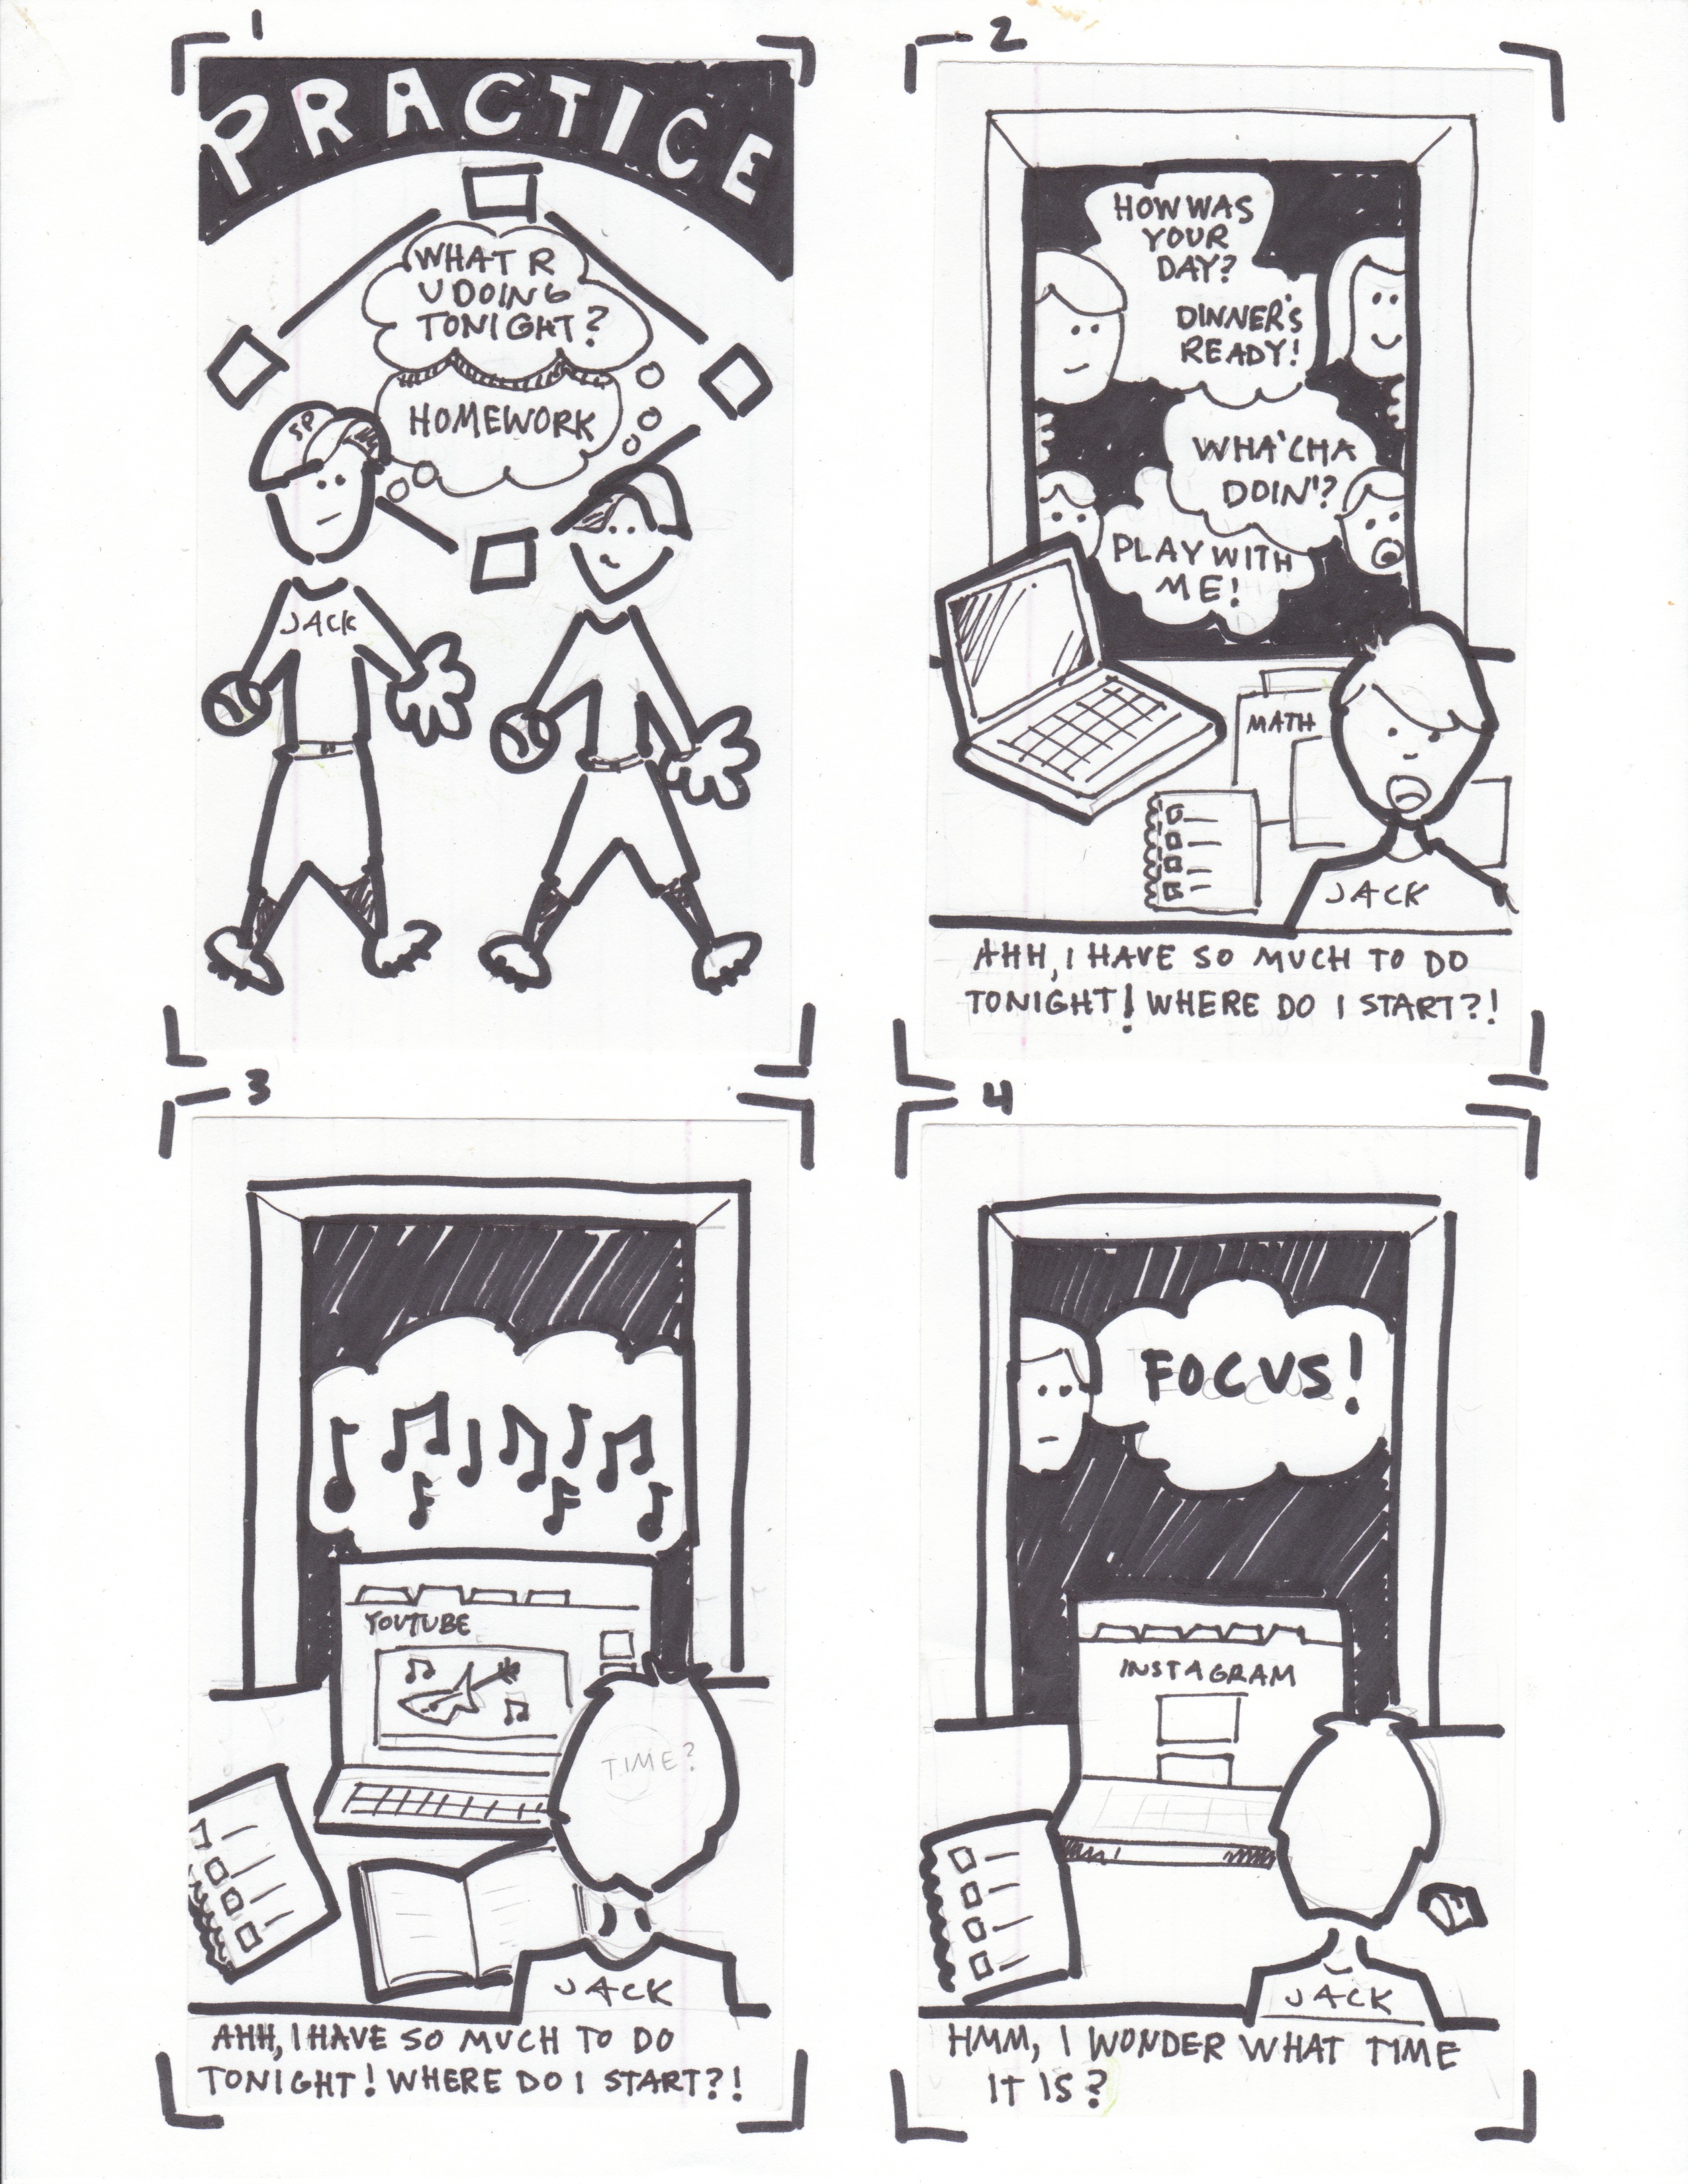 1
PRACTICE
WHAT R
U DOING
TONIGHT?
HOMEWORK
SP
JACK
2
HOW WAS
YOUR
DAY?
DINNER'S
READY!
WHA'CHA
DOIN'?
PLAY WITH
ME!
MATH
JACK
AHH, I HAVE SO MUCH TO DO
TONIGHT! WHERE DO I START?!
3
YOUTUBE
TIME?
JACK
AHH, I HAVE SO MUCH TO DO
TONIGHT! WHERE DO I START?!
4
FOCUS!
INSTAGRAM
JACK
HMM, I WONDER WHAT TIME
IT IS?